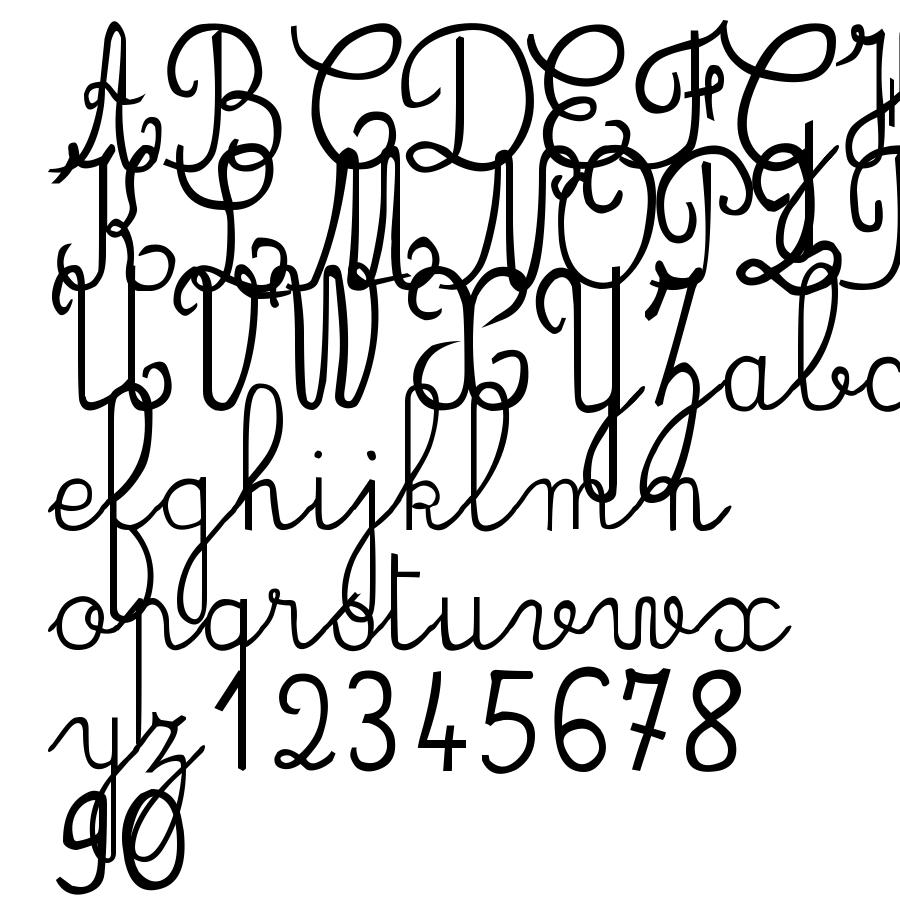 ABCDEFGH
KLMNOPQ
UVWXYZabc
efghijklmn
opqrstuvwx
yz12345678
90